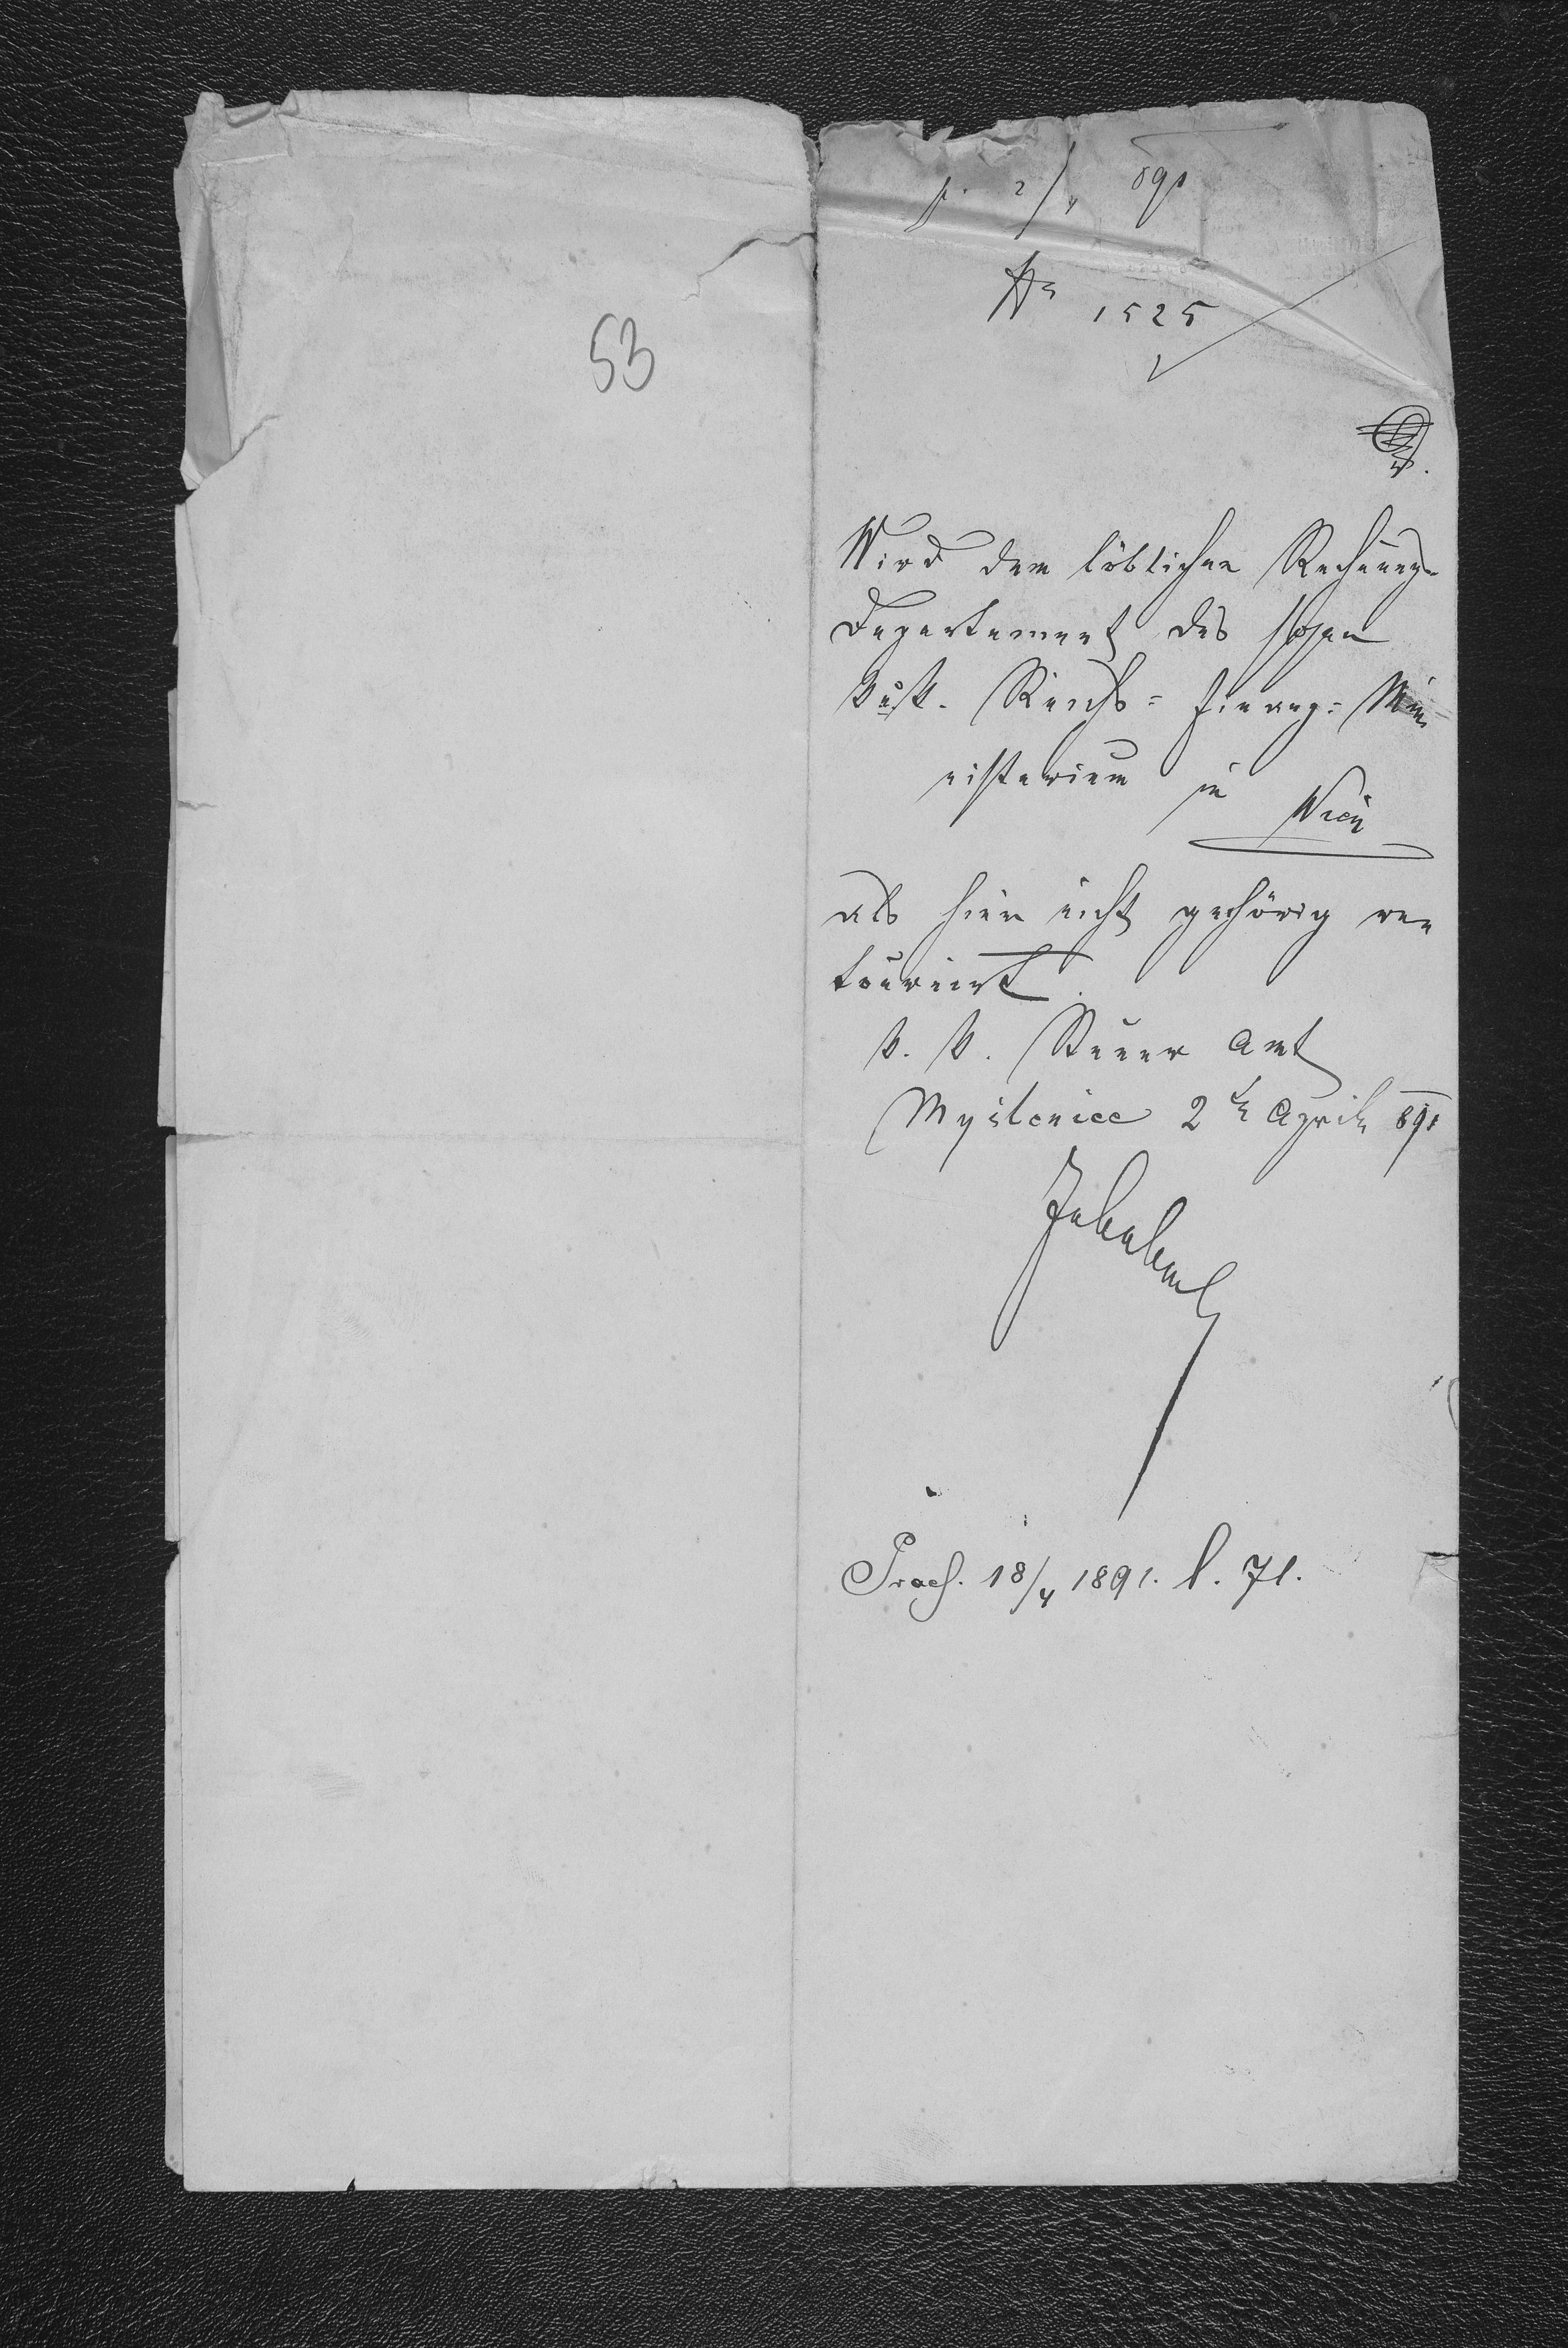 53
p. 2/4 891
Nr 1525
Wird dem löblichen Rechnungs-
Departement des hohen
k.u.k. Reichs=Finanz=Mi-
nisterium in Wien
als hier nicht gehörig re-
touriert.
K. K. Steuer Amt
Myslenice 2te April 891
Praes. 18/4 1891. l. 71.